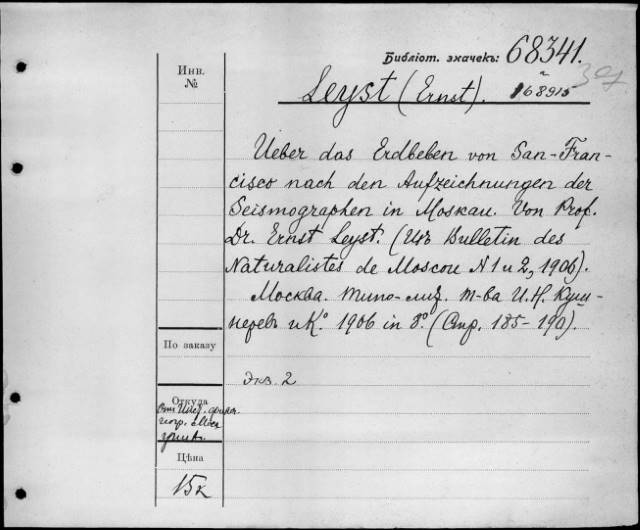 Библіот. значекъ: 68341.
Инв.
№
и
Leyst (Ernst). 168915
Ueber das Erdbeben von San-Fran-
cisco nach den Aufzeichnungen der
Seismographen in Moskau. Von Prof.
Dr. Ernst Leyst. (Изъ Bulletin des
Naturalistes de Moscou N 1 и 2, 1906).
Москва. Типо-лит. т-ва И.Н. Куш-
неревъ и К° 1906 in 8°. (Стр. 185-190).
По заказу
Экз. 2
Откуда
Цѣна
15к